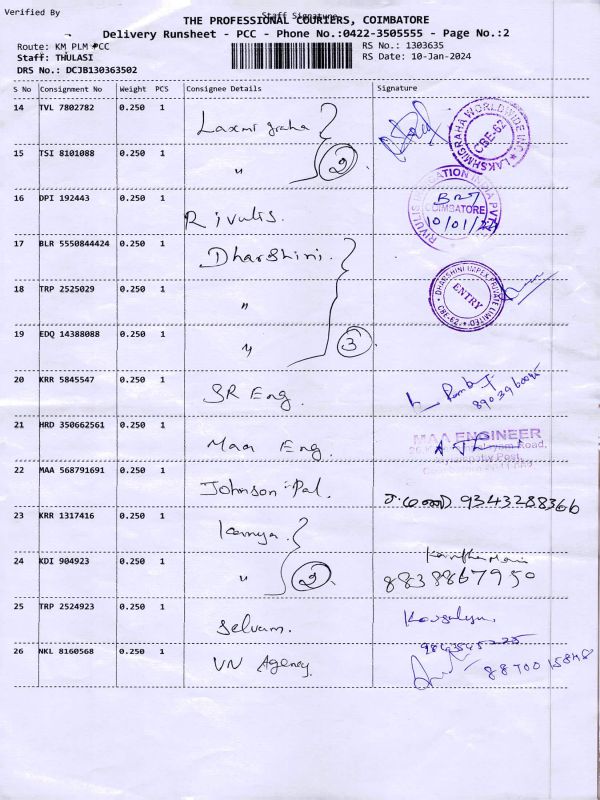 Verified By
Staff Signature
THE PROFESSIONAL COURIERS, COIMBATORE
Delivery Runsheet - PCC - Phone No.:0422-3505555 - Page No.:2
Route: KM PLM PCC
RS No.: 1303635
Staff: THULASI
RS Date: 10-Jan-2024
DRS No.: DCJB130363502
S No Consignment No Weight PCS Consignee Details Signature
14 TVL 7802782 0.250 1 Laxmi graha
LAKSHMIGRAHA WORLDWIDE INC. CBE-62
15 TSI 8101088 0.250 1 " 2
16 DPI 192443 0.250 1 Rivulis.
RIVULIS IRRIGATION INDIA PVT COIMBATORE
10/01/24
17 BLR 5550844424 0.250 1 Dharshini.
18 TRP 2525029 0.250 1 "
DHARSHINI IMPEX PRIVATE LIMITED CBE-62 ENTRY
19 EDQ 14388088 0.250 1 " 3
20 KRR 5845547 0.250 1 SR Eng.
21 HRD 350662561 0.250 1 Maa Eng.
MAA ENGINEER
22 MAA 568791691 0.250 1 Johnson Pal. 9343288366
23 KRR 1317416 0.250 1 Kamya.
24 KDI 904923 0.250 1 " 2
8838867950
25 TRP 2524923 0.250 1 Selvam. Kousalya
26 NKL 8160568 0.250 1 VN Agency.